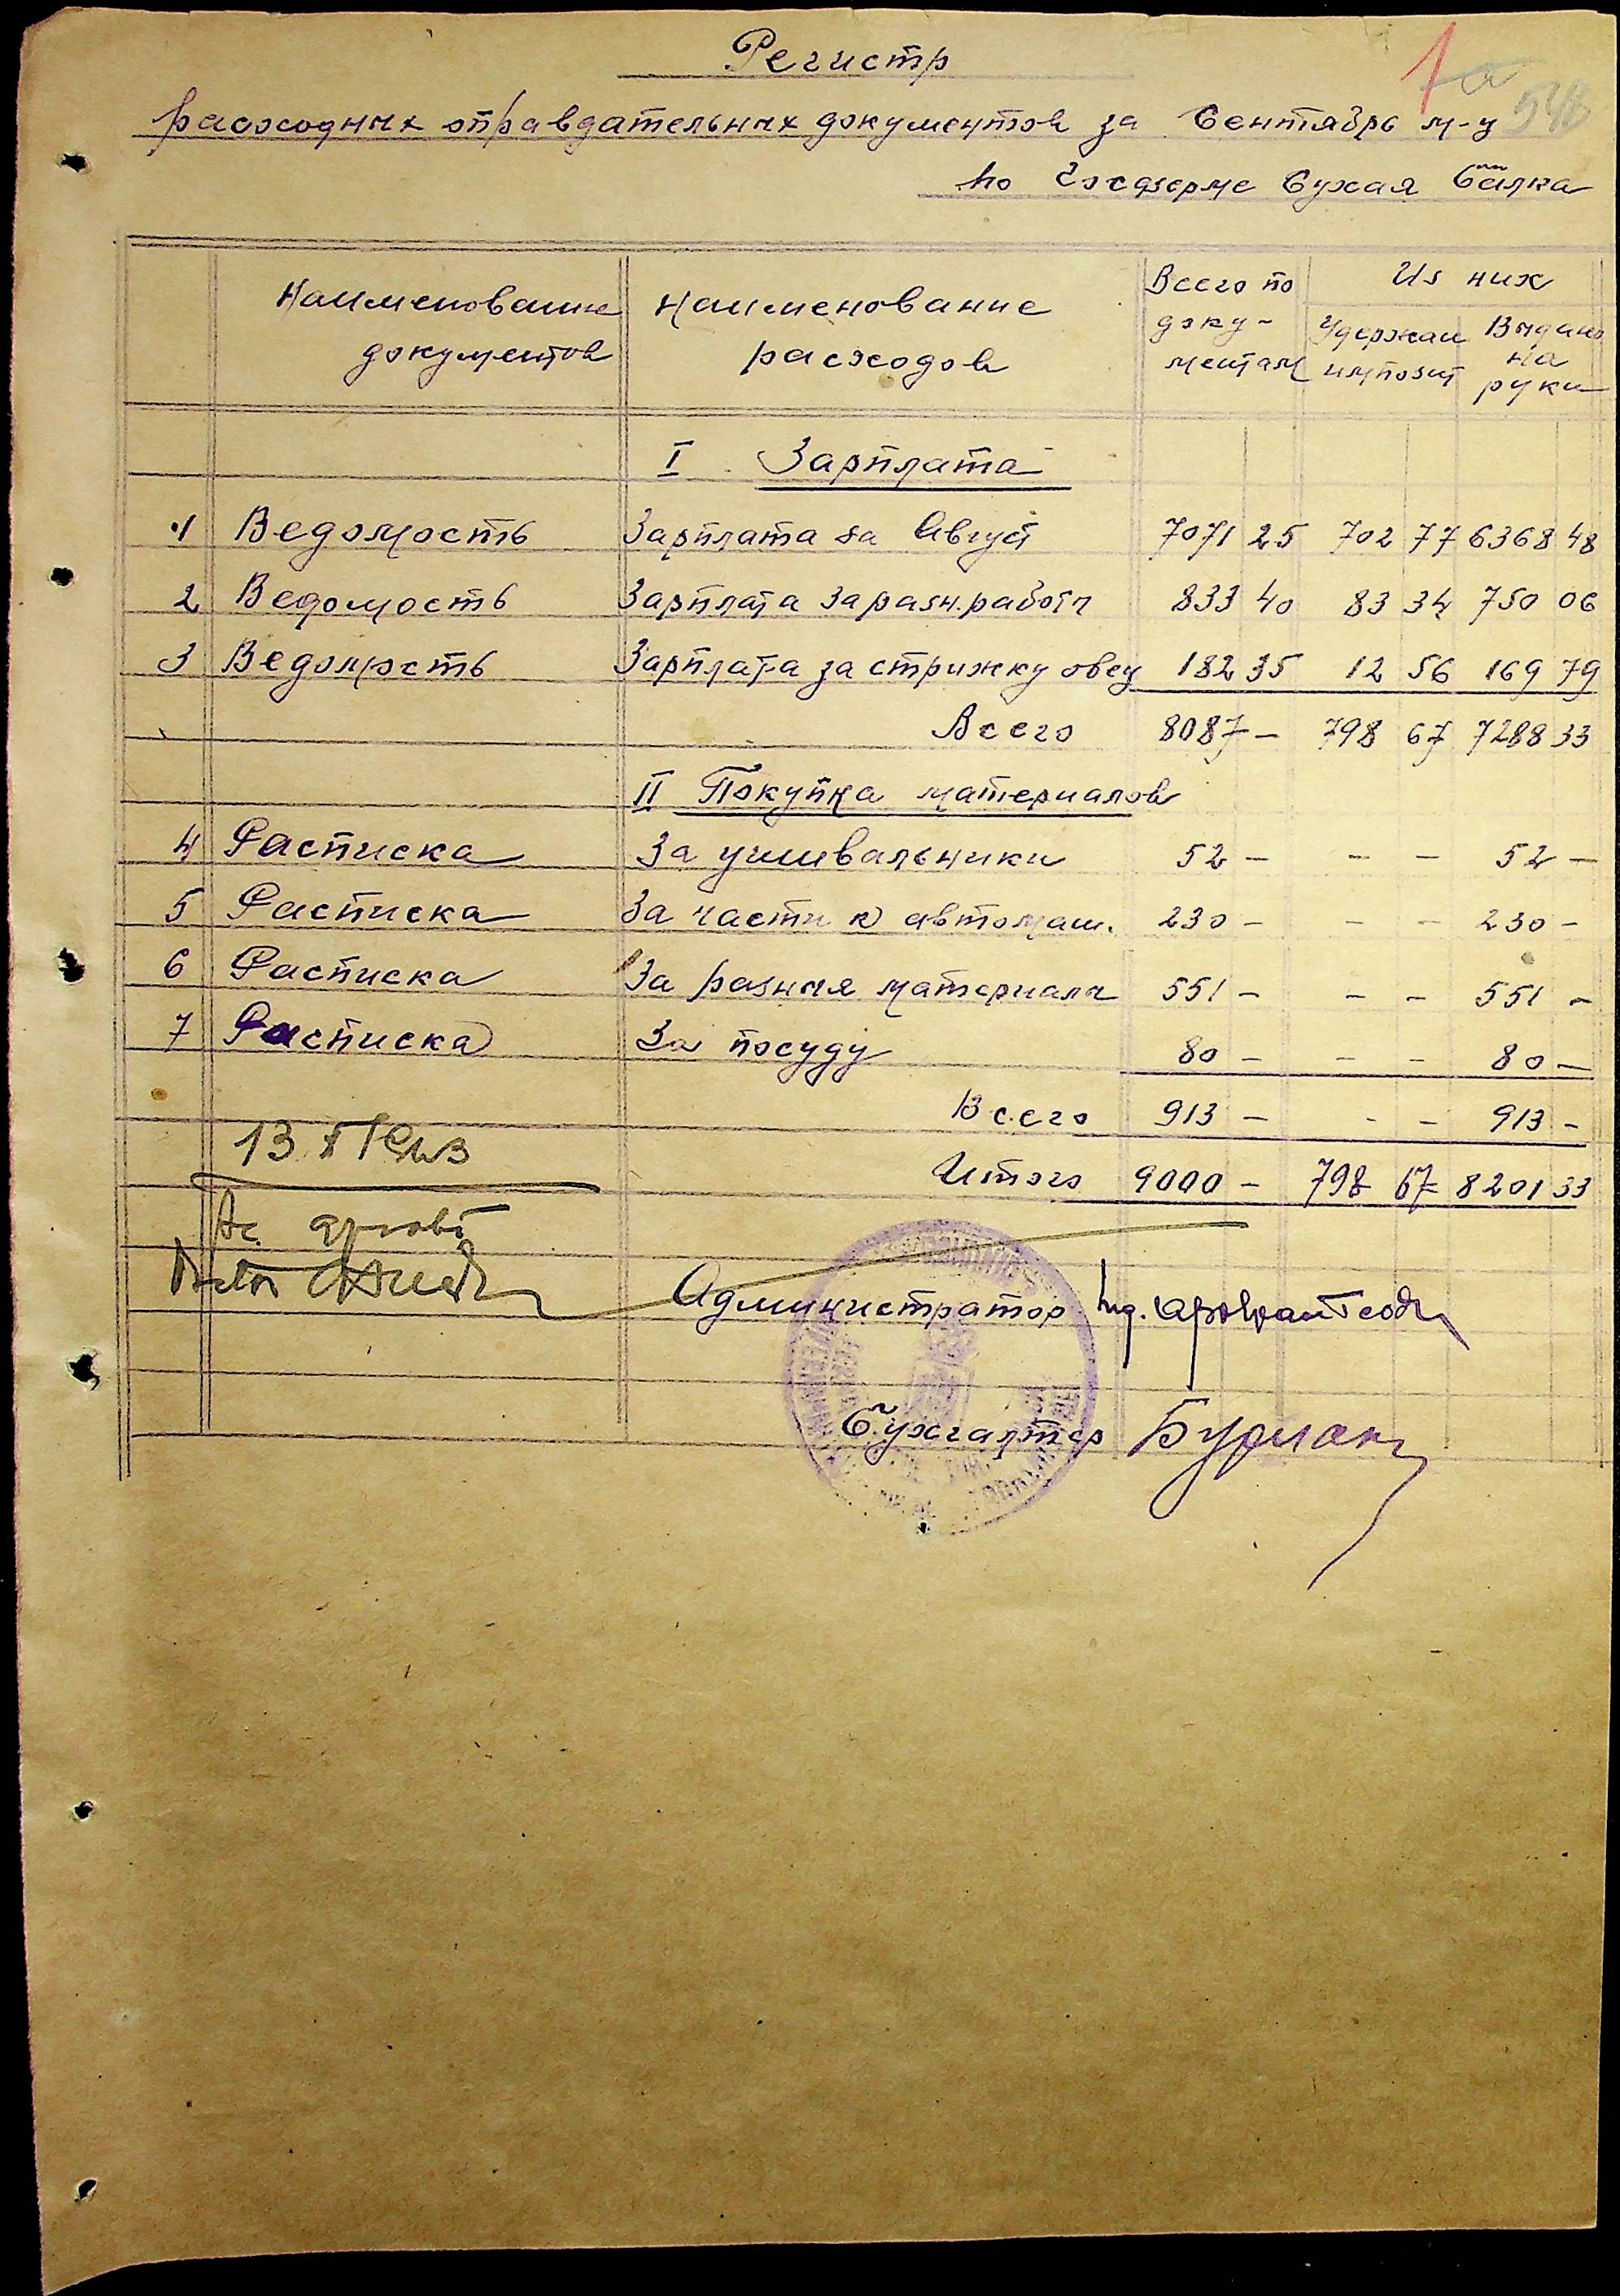 1а
548
Регистр
расходных оправдательных документов за Сентябрь м-ц
по Госферме Сухая Балка
Наименование документов
Наименование расходов
Всего по доку-ментам
Из них
Удержан импозит
Выдано на руки
I Зарплата
1 Ведомость Зарплата за Август 7071 25 702 77 6368 48
2 Ведомость Зарплата за разн. работы 833 40 83 34 750 06
3 Ведомость Зарплата за стрижку овец 182 35 12 56 169 79
Всего 8087 – 798 67 7288 33
II Покупка материалов
4 Расписка За умывальники 52 – – – 52 –
5 Расписка За части к автомаш. 230 – – – 230 –
6 Расписка За разныя материалы 551 – – – 551 –
7 Расписка За посуду 80 – – – 80 –
Всего 913 – – – 913 –
Итого 9000 – 798 67 8201 33
13
Администратор Ing.
Бухгалтер